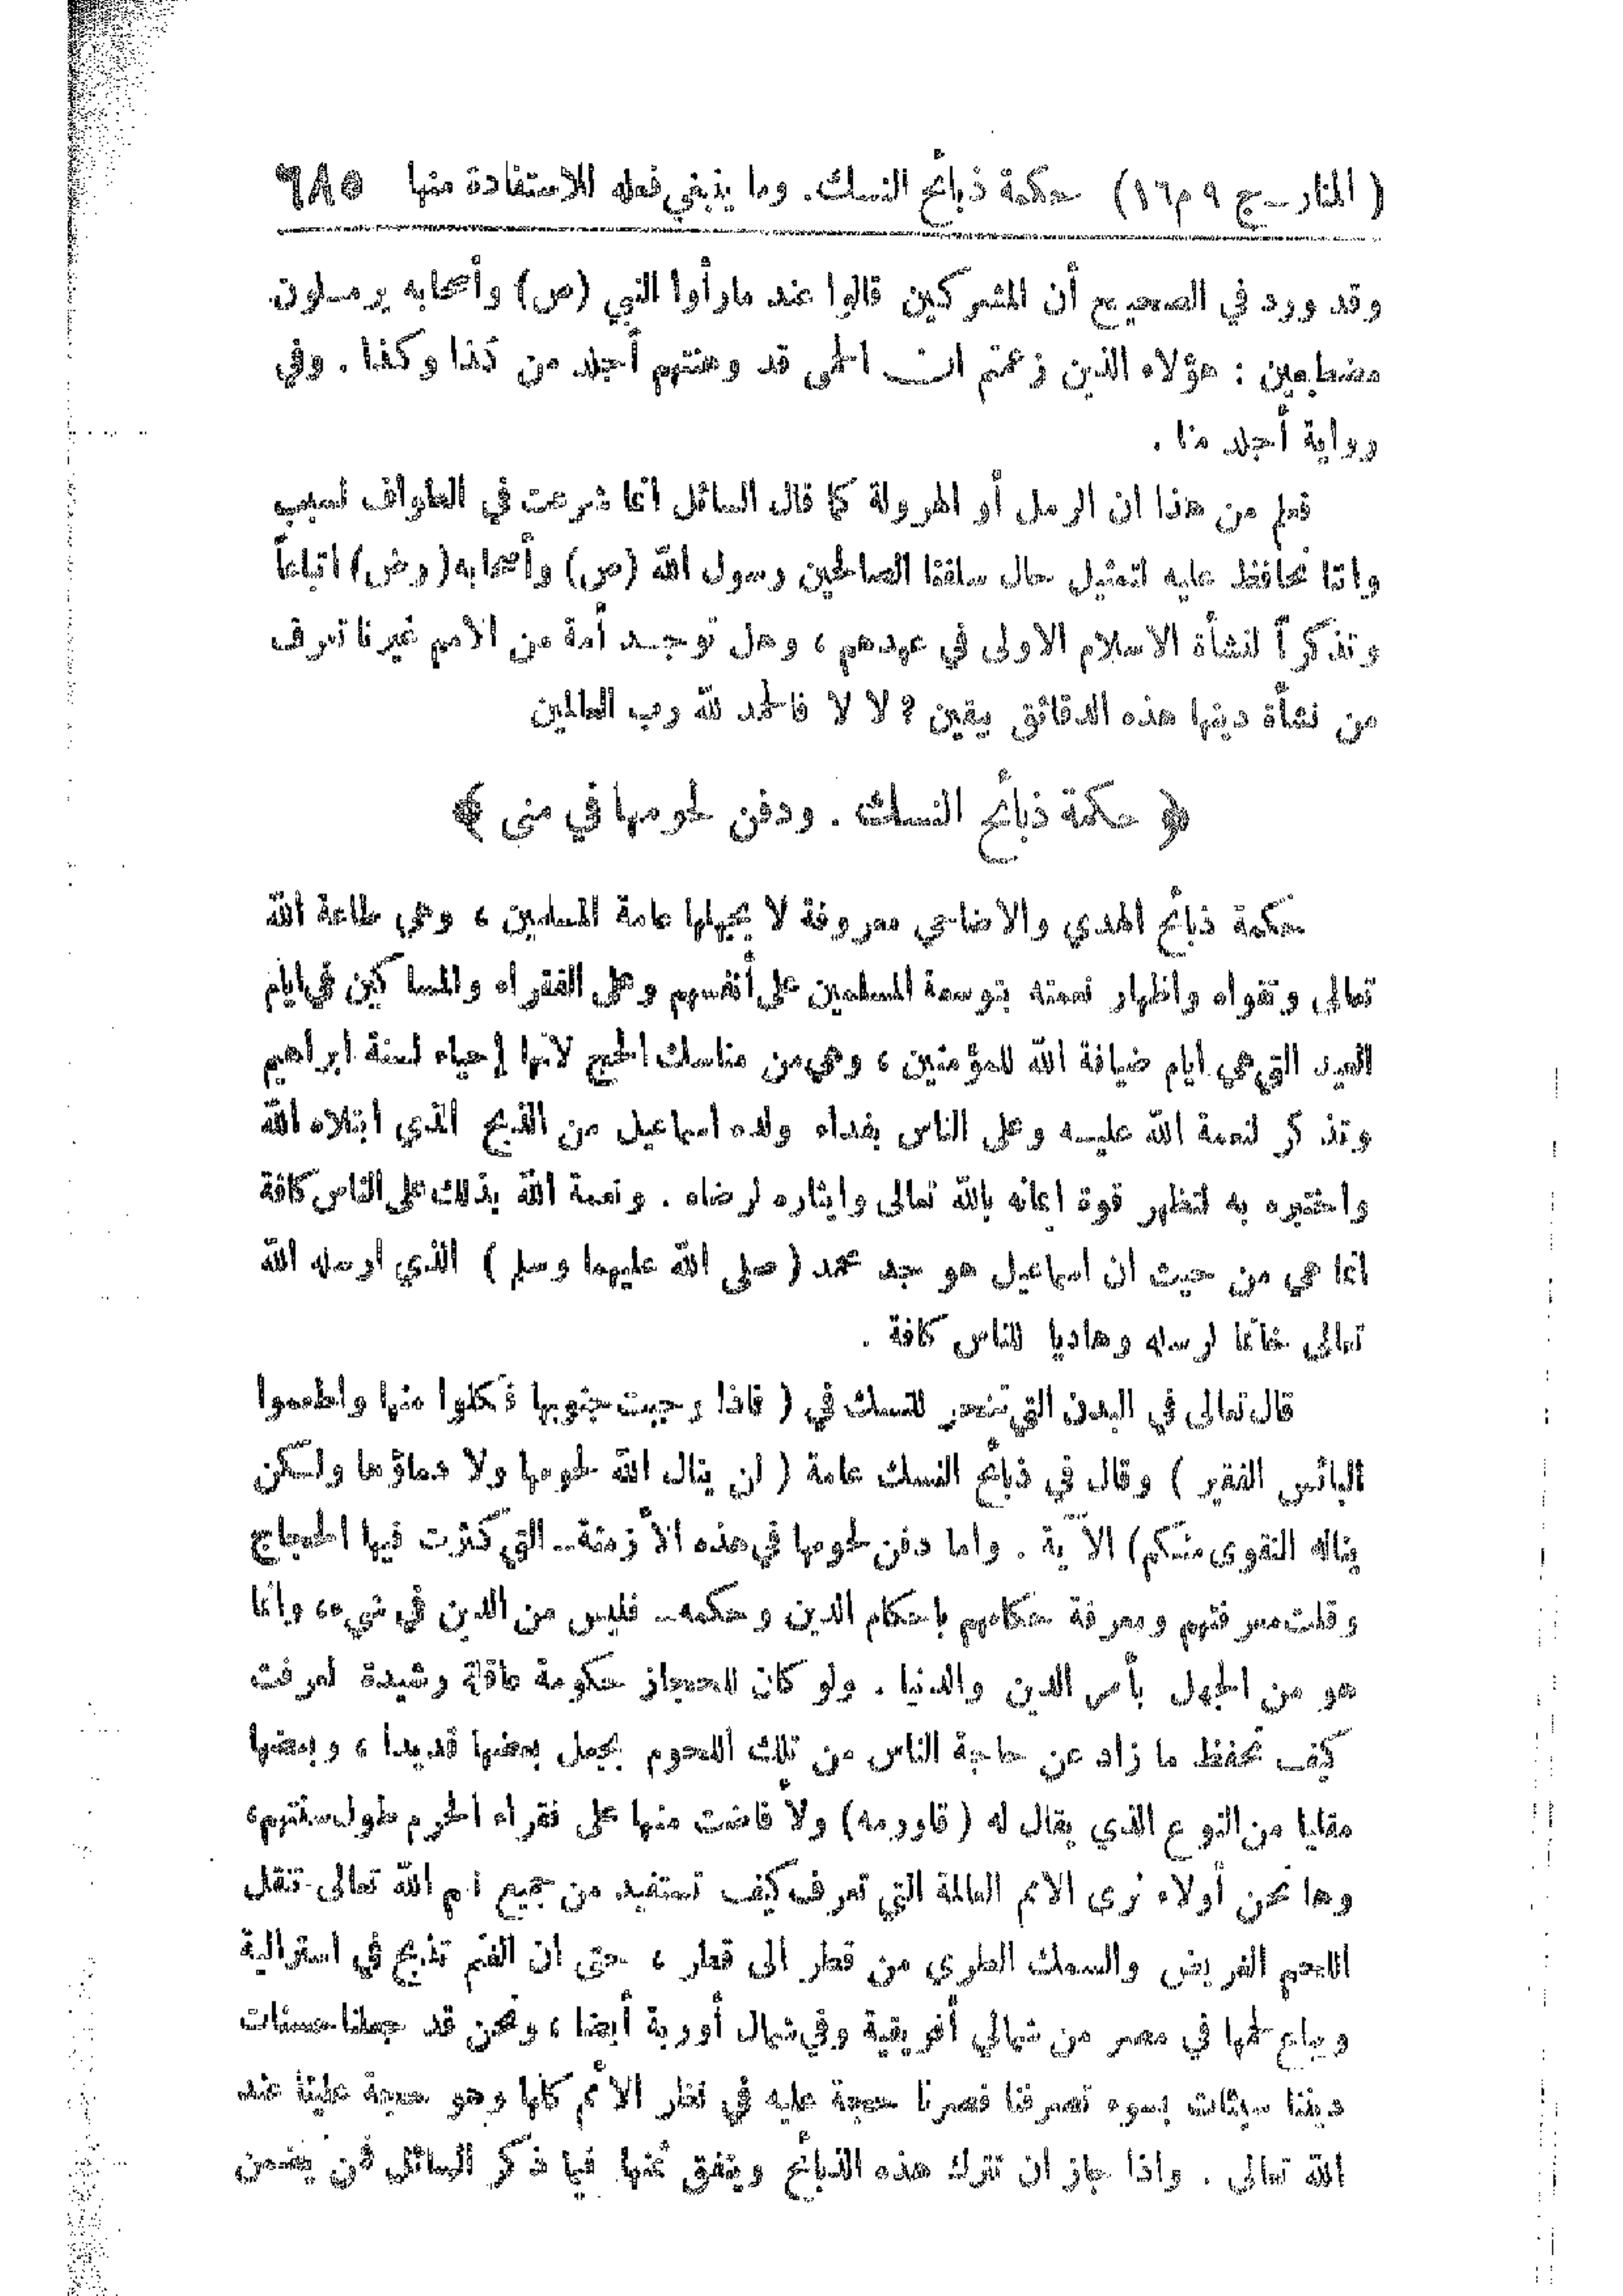 ( المنار ــ ج ٩ م ١٦ ) حكمة ذبائح النسك . وما ينبغي فعله للاستفادة منها ٦٨٥
وقد ورد في الصحيح أن المشركين قالوا عند ما رأوا النبي (ص) وأصحابه يرملون
مضطبعين : هؤلاء الذين زعمتم ان الحمى قد وهنتهم أجلد من كذا وكذا . وفي
رواية أجلد منا .
فعلم من هذا ان الرمل أو الهرولة كما قال السائل انما شرعت في الطواف لسبب
واننا نحافظ عليه لتمثيل حال سلفنا الصالحين رسول الله (ص) وأصحابه (رض) اتباعاً
وتذكراً لنشأة الاسلام الاولى في عهدهم ، وهل توجد أمة من الامم غيرنا تعرف
من نشأة دينها هذه الدقائق بيقين ؟ لا لا فالحمد لله رب العالمين
﴿ حكمة ذبائح النسك . ودفن لحومها في منى ﴾
حكمة ذبائح الهدي والاضاحي معروفة لا يجهلها عامة المسلمين ، وهي طاعة الله
تعالى وتقواه واظهار نعمته بتوسعة المسلمين على أنفسهم وعلى الفقراء والمساكين في ايام
العيد التي هي ايام ضيافة الله للمؤمنين ، وهي من مناسك الحج لانها إحياء لسنة ابراهيم
وتذكر لنعمة الله عليه وعلى الناس بفداء ولده اسماعيل من الذبح الذي ابتلاه الله
واختبره به لتظهر قوة ايمانه بالله تعالى وايثاره لرضاه . ونعمة الله بذلك على الناس كافة
انما هي من حيث ان اسماعيل هو جد محمد ( صلى الله عليهما وسلم ) الذي ارسله الله
تعالى خاتما لرسله وهاديا للناس كافة .
قال تعالى في البدن التي تنحر للنسك في ( فاذا وجبت جنوبها فكلوا منها واطعموا
البائس الفقير ) وقال في ذبائح النسك عامة ( لن ينال الله لحومها ولا دماؤها ولكن
يناله التقوى منكم ) الآية . واما دفن لحومها في هذه الأزمنة ــ التي كثرت فيها الحجاج
وقلت معرفتهم ومعرفة حكامهم باحكام الدين وحكمه ــ فليس من الدين في شيء ، وانما
هو من الجهل بأمر الدين والدنيا . ولو كان للحجاز حكومة عاقلة رشيدة لعرفت
كيف تحفظ ما زاد عن حاجة الناس من تلك اللحوم بجعل بعضها قديدا ، وبعضها
مقليا من النوع الذي يقال له ( قاورمه ) ولأفاضت منها على فقراء الحرم طول سنتهم ،
وها نحن أولاء نرى الامم العالمة التي تعرف كيف تستفيد من جميع نعم الله تعالى تنقل
اللحم الغريض والسمك الطري من قطر الى قطر ، حتى ان الغنم تذبح في استرالية
ويباع لحمها في مصر من شمالي أفريقية وفي شمال أوربة أيضا ، ونحن قد جعلنا حسنات
ديننا سيئات بسوء تصرفنا فصرنا حجة عليه في نظر الأمم كلها وهو حجة علينا عند
الله تعالى . واذا جاز ان تترك هذه الذبائح وينفق ثمنها فيما ذكر السائل فمن يضمن